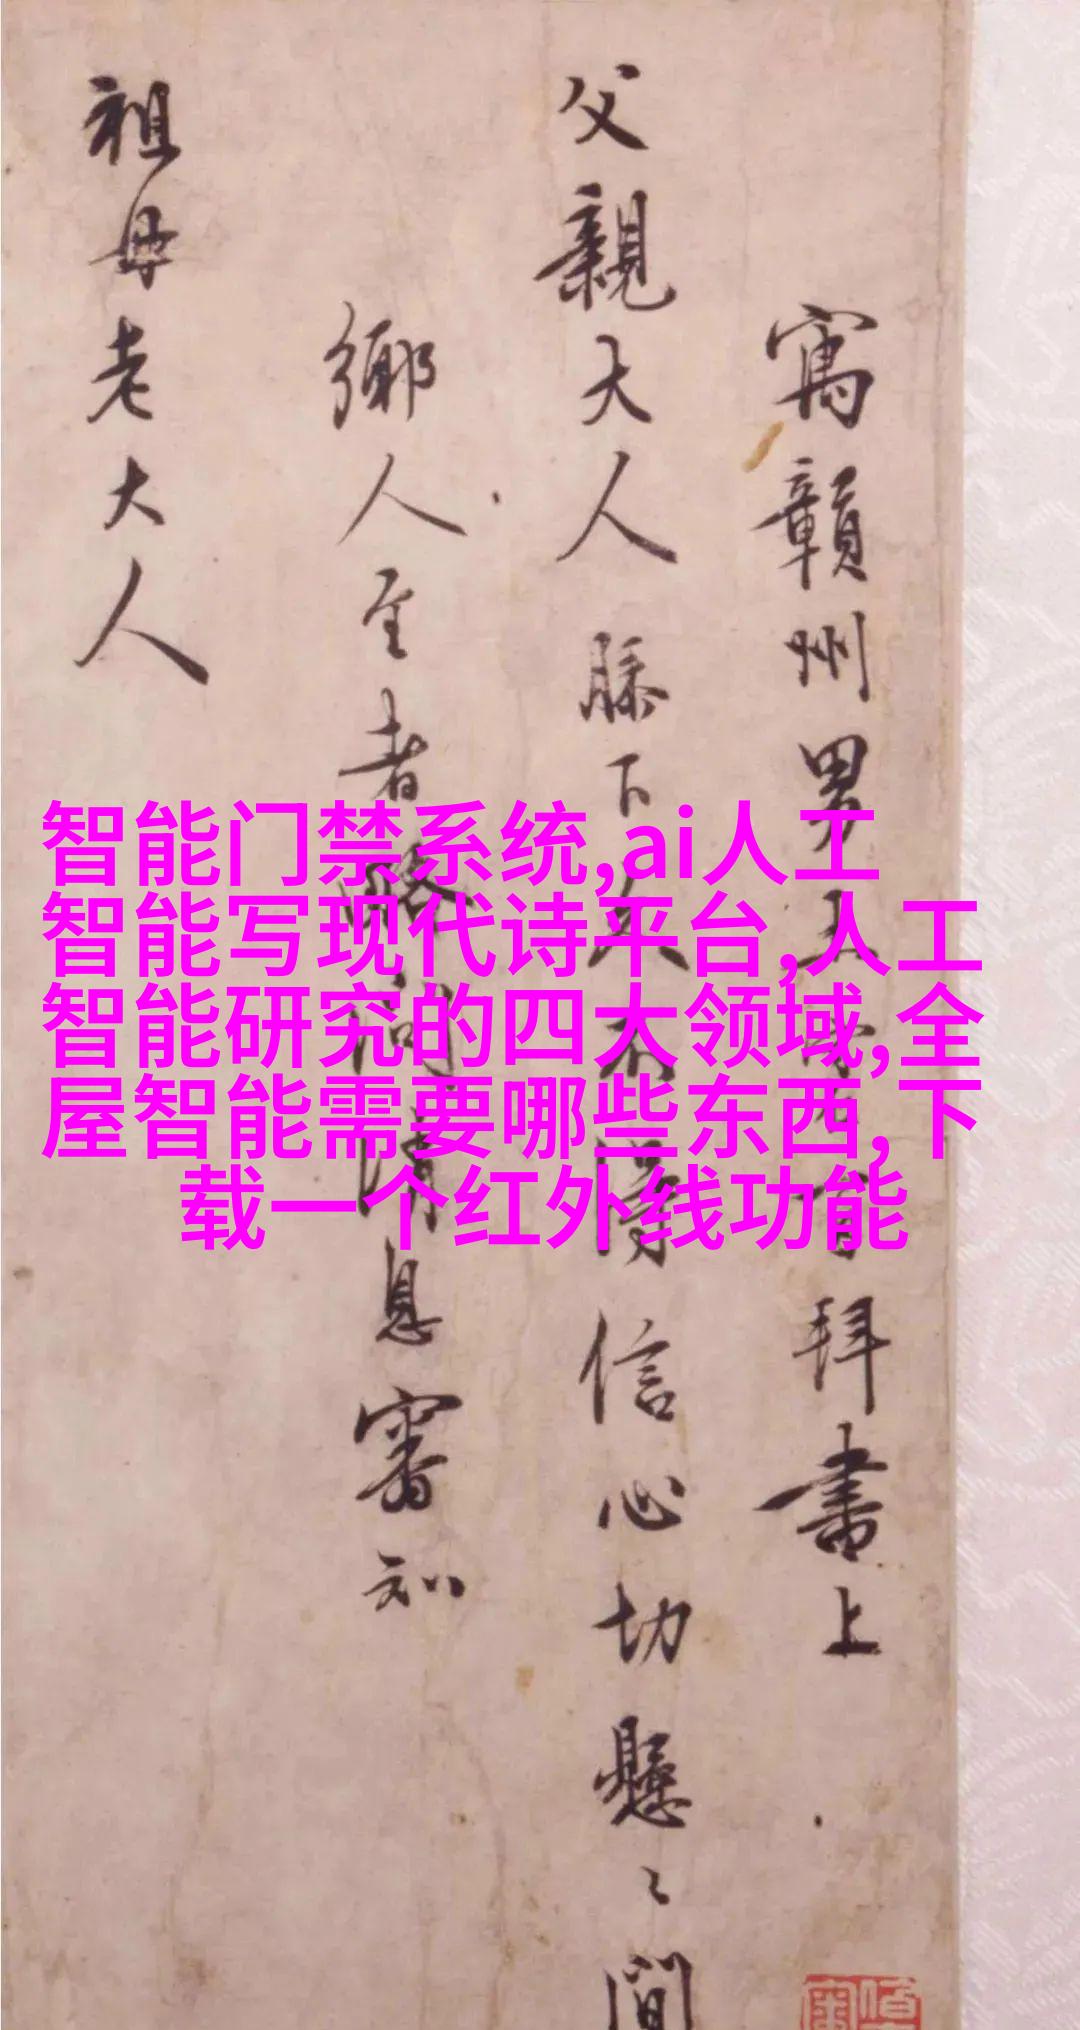 寓贛州男王守仁百拜書上
父親大人膝下久不得信心切懸〻間
鄉人至者略詢消息審知
祖母老大人
智能门禁系统,ai人工
智能写现代诗平台,人工
智能研究的四大领域,全
屋智能需要哪些东西,下
载一个红外线功能